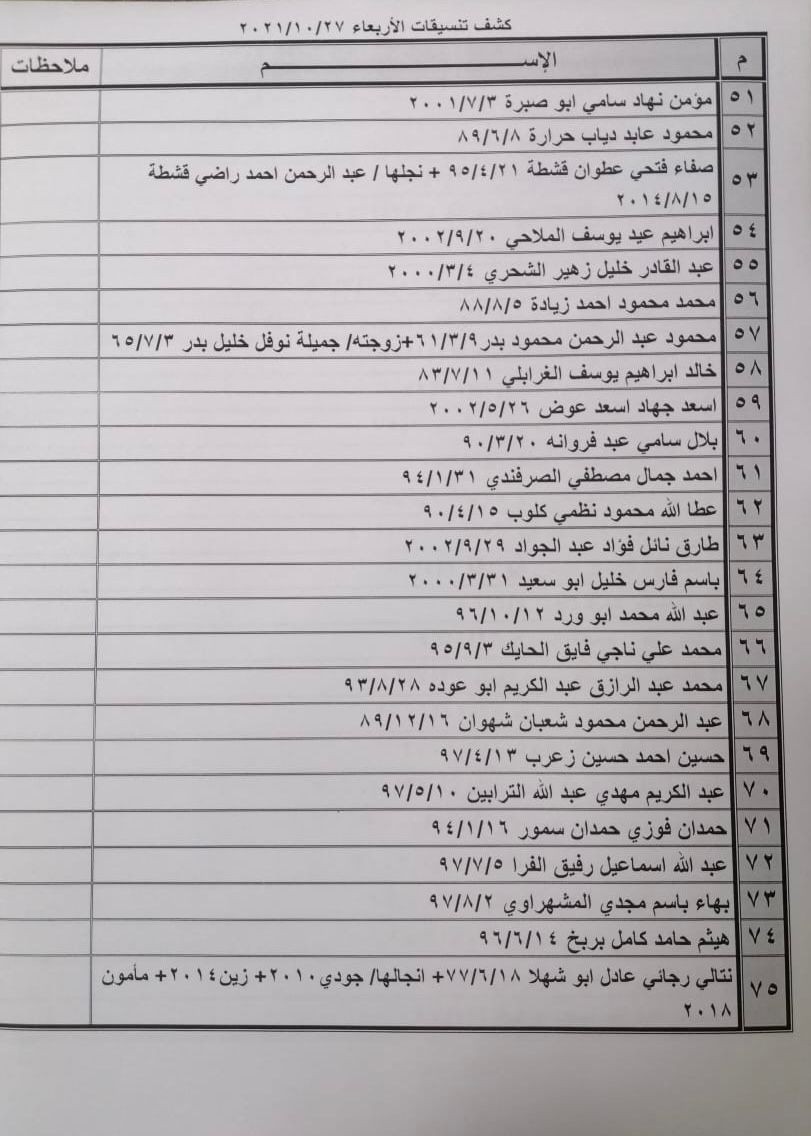 كشف تنسيقات الأربعاء ٢٠٢١/١٠/٢٧
م الإســـــــــــــــــم ملاحظات
٥١ مؤمن نهاد سامي ابو صبرة ٢٠٠١/٧/٣
٥٢ محمود عابد دياب حرارة ٨٩/٦/٨
٥٣ صفاء فتحي عطوان قشطة ٩٥/٤/٢١ + نجلها / عبد الرحمن احمد راضي قشطة
٢٠١٤/٨/١٥
٥٤ ابراهيم عيد يوسف الملاحي ٢٠٠٢/٩/٢٠
٥٥ عبد القادر خليل زهير الشحري ٢٠٠٠/٣/٤
٥٦ محمد محمود احمد زيادة ٨٨/٨/٥
٥٧ محمود عبد الرحمن محمود بدر ٦١/٣/٩+زوجته/ جميلة نوفل خليل بدر ٦٥/٧/٣
٥٨ خالد ابراهيم يوسف الغرابلي ٨٣/٧/١١
٥٩ اسعد جهاد اسعد عوض ٢٠٠٢/٥/٢٦
٦٠ بلال سامي عبد فروانه ٩٠/٣/٢٠
٦١ احمد جمال مصطفي الصرفندي ٩٤/١/٣١
٦٢ عطا الله محمود نظمي كلوب ٩٠/٤/١٥
٦٣ طارق نائل فؤاد عبد الجواد ٢٠٠٢/٩/٢٩
٦٤ باسم فارس خليل ابو سعيد ٢٠٠٠/٣/٣١
٦٥ عبد الله محمد ابو ورد ٩٦/١٠/١٢
٦٦ محمد علي ناجي فايق الحايك ٩٥/٩/٣
٦٧ محمد عبد الرازق عبد الكريم ابو عوده ٩٣/٨/٢٨
٦٨ عبد الرحمن محمود شعبان شهوان ٨٩/١٢/١٦
٦٩ حسين احمد حسين زعرب ٩٧/٤/١٣
٧٠ عبد الكريم مهدي عبد الله الترابين ٩٧/٥/١٠
٧١ حمدان فوزي حمدان سمور ٩٤/١/١٦
٧٢ عبد الله اسماعيل رفيق الفرا ٩٧/٧/٥
٧٣ بهاء باسم مجدي المشهراوي ٩٧/٨/٢
٧٤ هيثم حامد كامل بربخ ٩٦/٦/١٤
٧٥ نتالي رجائي عادل ابو شهلا ٧٧/٦/١٨+ انجالها/ جودي٢٠١٠+ زين٢٠١٤+ مأمون
٢٠١٨